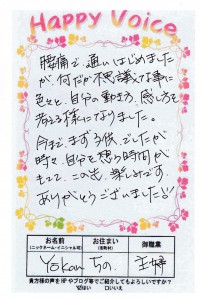 Happy Voice
腰痛で通いはじめました
が、何だか不思議な事に
色々と、自分の動き方、感じ方を
考える様になりました。
今まで、まず子供、でしたが
時々、自分を想う時間が
もてて、この先、楽しみです。
ありがとうございました!!
お名前
(ニックネーム・イニシャル可)
お住まい
(市町村)
御職業
Yokan
ちの
主婦
貴方様の声をHPやブログ等でご紹介してもよろしいですか?
はい □いいえ